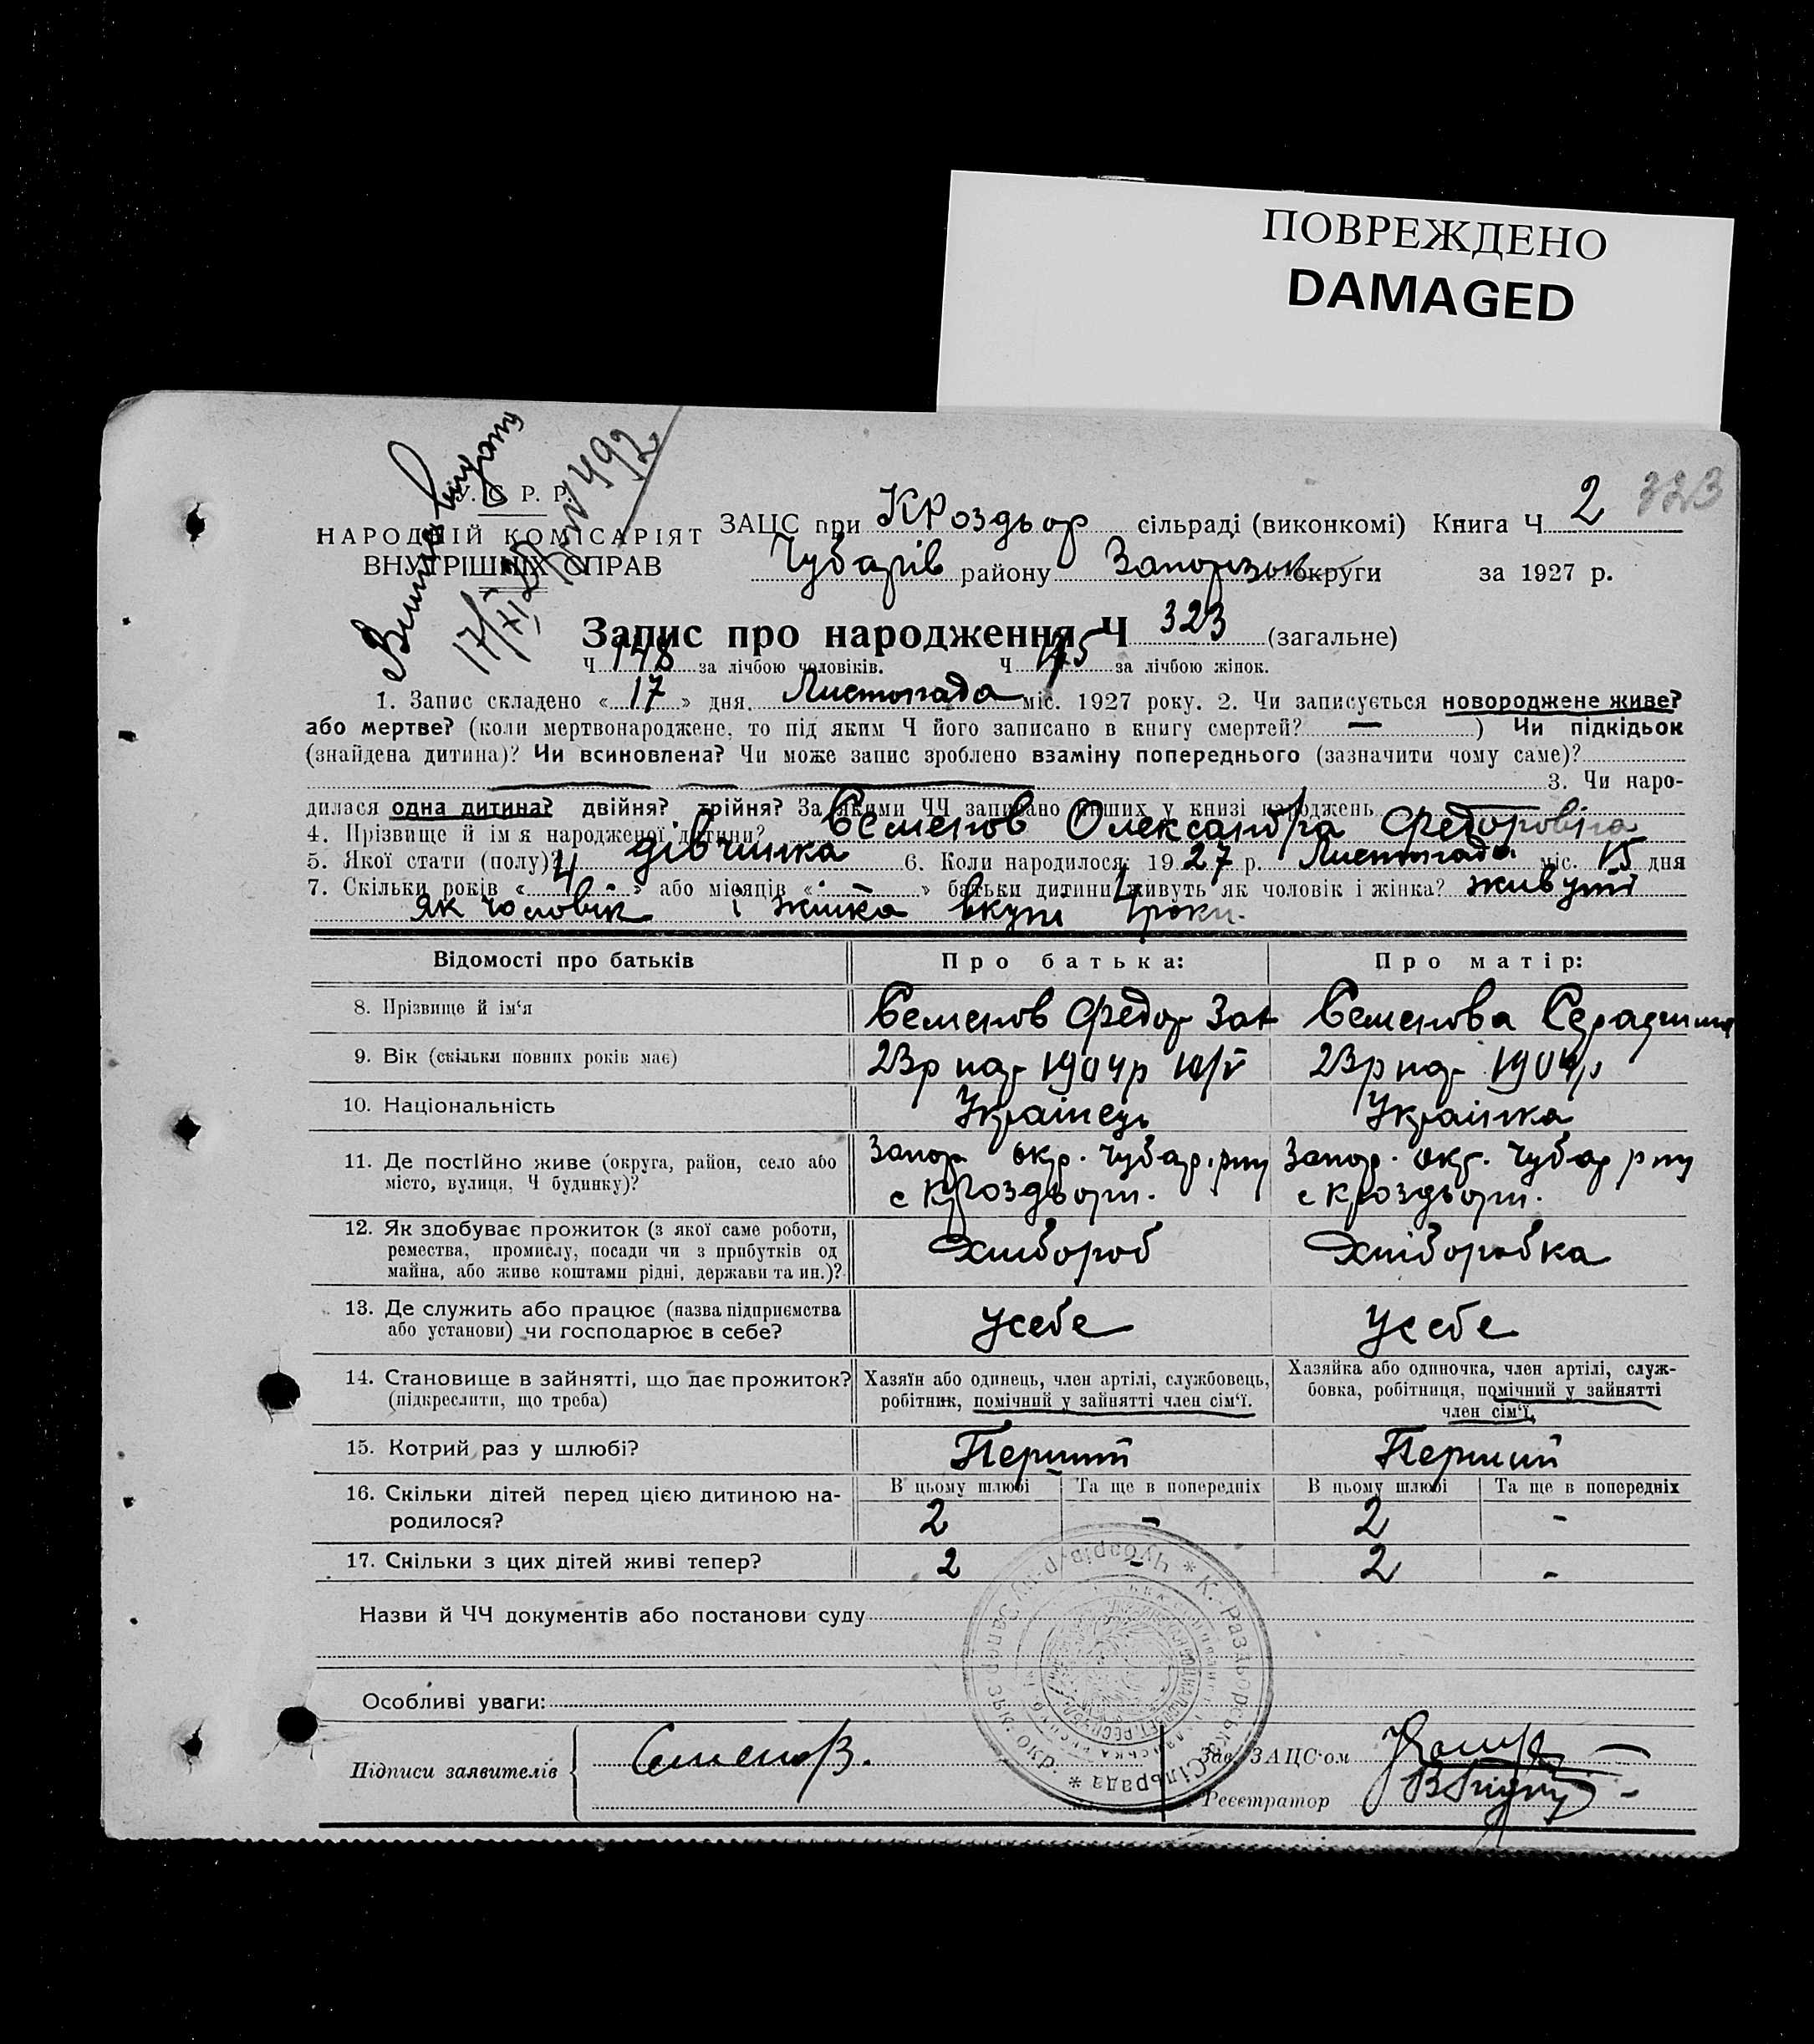 ПОВРЕЖДЕНО
DAMAGED
323
У. С. Р. Р.
НАРОДНІЙ КОМІСАРІЯТ
ВНУТРІШНІХ СПРАВ
492
ЗАЦС при КРоздьор сільраді (виконкомі) Книга Ч 2
Чубарів району Запорізьк округи за 1927 р.
Запис про народження Ч 323 (загальне)
Ч 148 за лічбою чоловіків. Ч 175 за лічбою жінок.
1. Запис складено « 17 » дня. Листопада міс. 1927 року. 2. Чи записується новороджене живе?
або мертве? (коли мертвонароджене, то під яким Ч його записано в книгу смертей? — ) Чи підкідьок
(знайдена дитина)? Чи всиновлена? Чи може запис зроблено взаміну попереднього (зазначити чому саме)?
3. Чи наро-
дилася одна дитина? двійня? трійня? За якими ЧЧ записано инших у книзі народжень
4. Прізвище й ім я народженої дитини? Семенов Олександра Федоровна
5. Якої стати (полу)? дівчинка 6. Коли народилося: 1927 р. Листопада міс. 15 дня
7. Скільки років « 4 - » або місяців « - » батьки дитини живуть як чоловік і жінка? живуть
як чоловік і жінка вкупі 4 роки.
Відомості про батьків Про батька: Про матір:
8. Прізвище й ім‘я Семенов Федор Зах Семенова Серафима
9. Вік (скільки повних років має) 23р нар 1904р 23р нар 1904р
10. Національність Українець Українка
11. Де постійно живе (округа, район, село або Запор окр. Чубар. рну Запор. окр. Чубар рну
місто, вулиця, Ч будинку)? с Кроздьори. с Кроздьори.
12. Як здобуває прожиток (з якої саме роботи, Хлібороб Хліборобка
ремества, промислу, посади чи з прибутків од
майна, або живе коштами рідні, держави та ин.)?
13. Де служить або працює (назва підприємства Усебе Усебе
або установи) чи господарює в себе?
14. Становище в зайнятті, що дає прожиток? Хазяїн або одинець, член артілі, службовець, Хазяйка або одиночка, член артілі, служ-
(підкреслити, що треба) робітник, помічний у зайнятті член сім‘ї. бовка, робітниця, помічний у зайнятті
член сім‘ї.
15. Котрий раз у шлюбі? Перший Перший
16. Скільки дітей перед цією дитиною на- В цьому шлюбі Та ще в попередніх В цьому шлюбі Та ще в попередніх
родилося? 2 - 2 -
17. Скільки з цих дітей живі тепер? 2 - 2 -
Назви й ЧЧ документів або постанови суду
Особливі уваги:
К.-Раздьорська Сільрада * Чубарів. р-ну Запорізьк. окр.
Підписи заявителів Семенов. Зав. ЗАЦС‘ом
Реєстратор